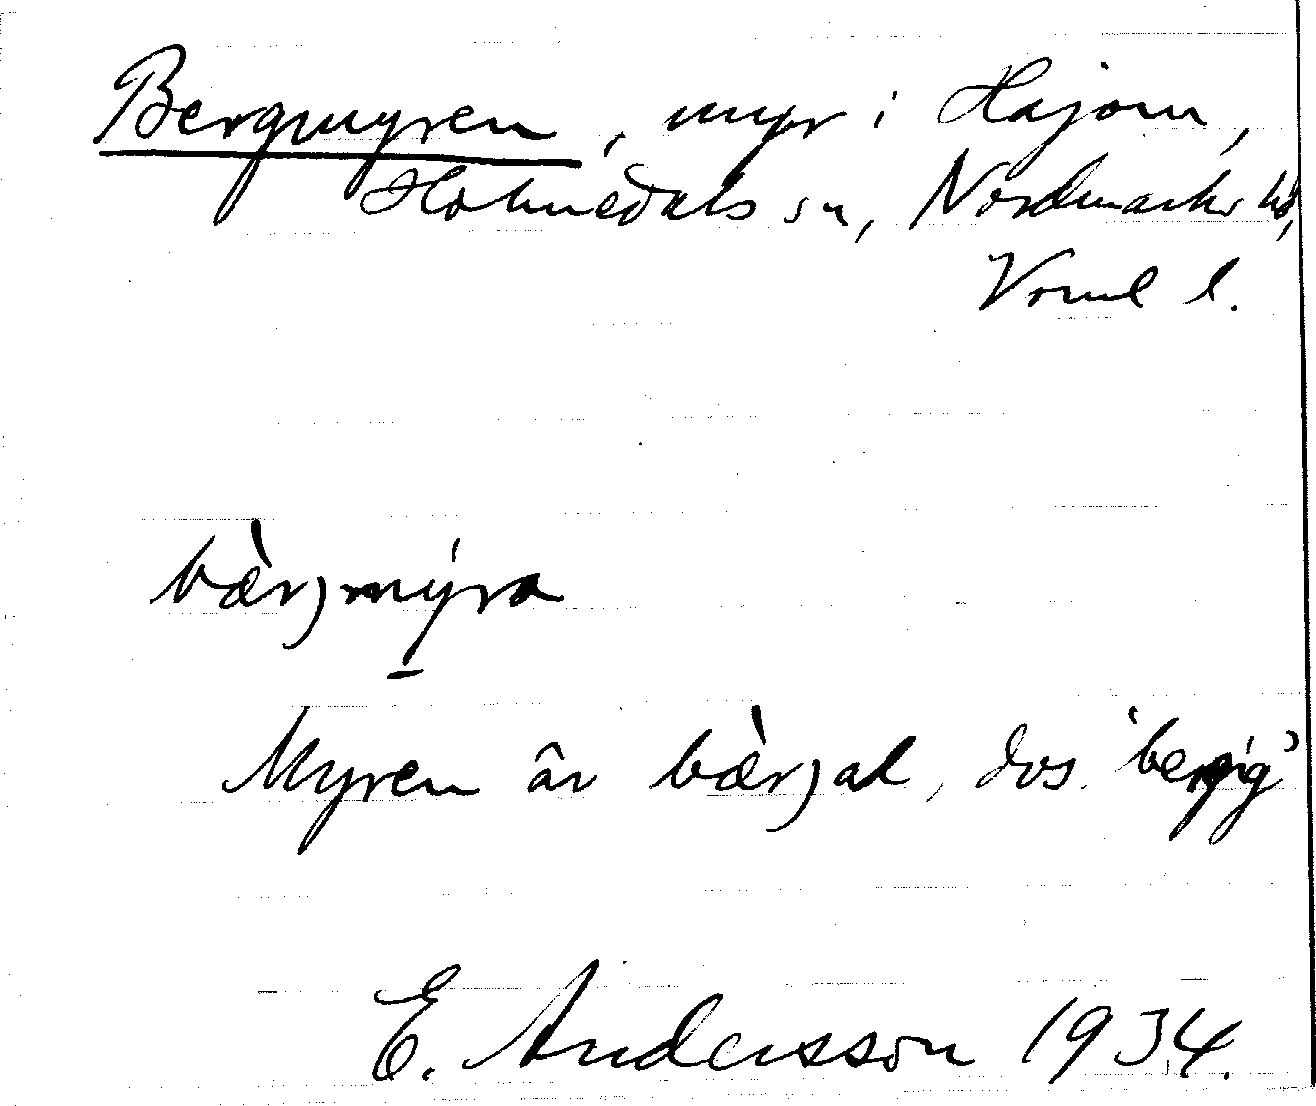 Bergmyren, myr i Hajom,
Holmedals sn, Nordmarks hd,
Vrml l.
bæ̀rjmýra
Myren är bæ̀rjal, dvs. 'bergig'
E. Andersson 1934.